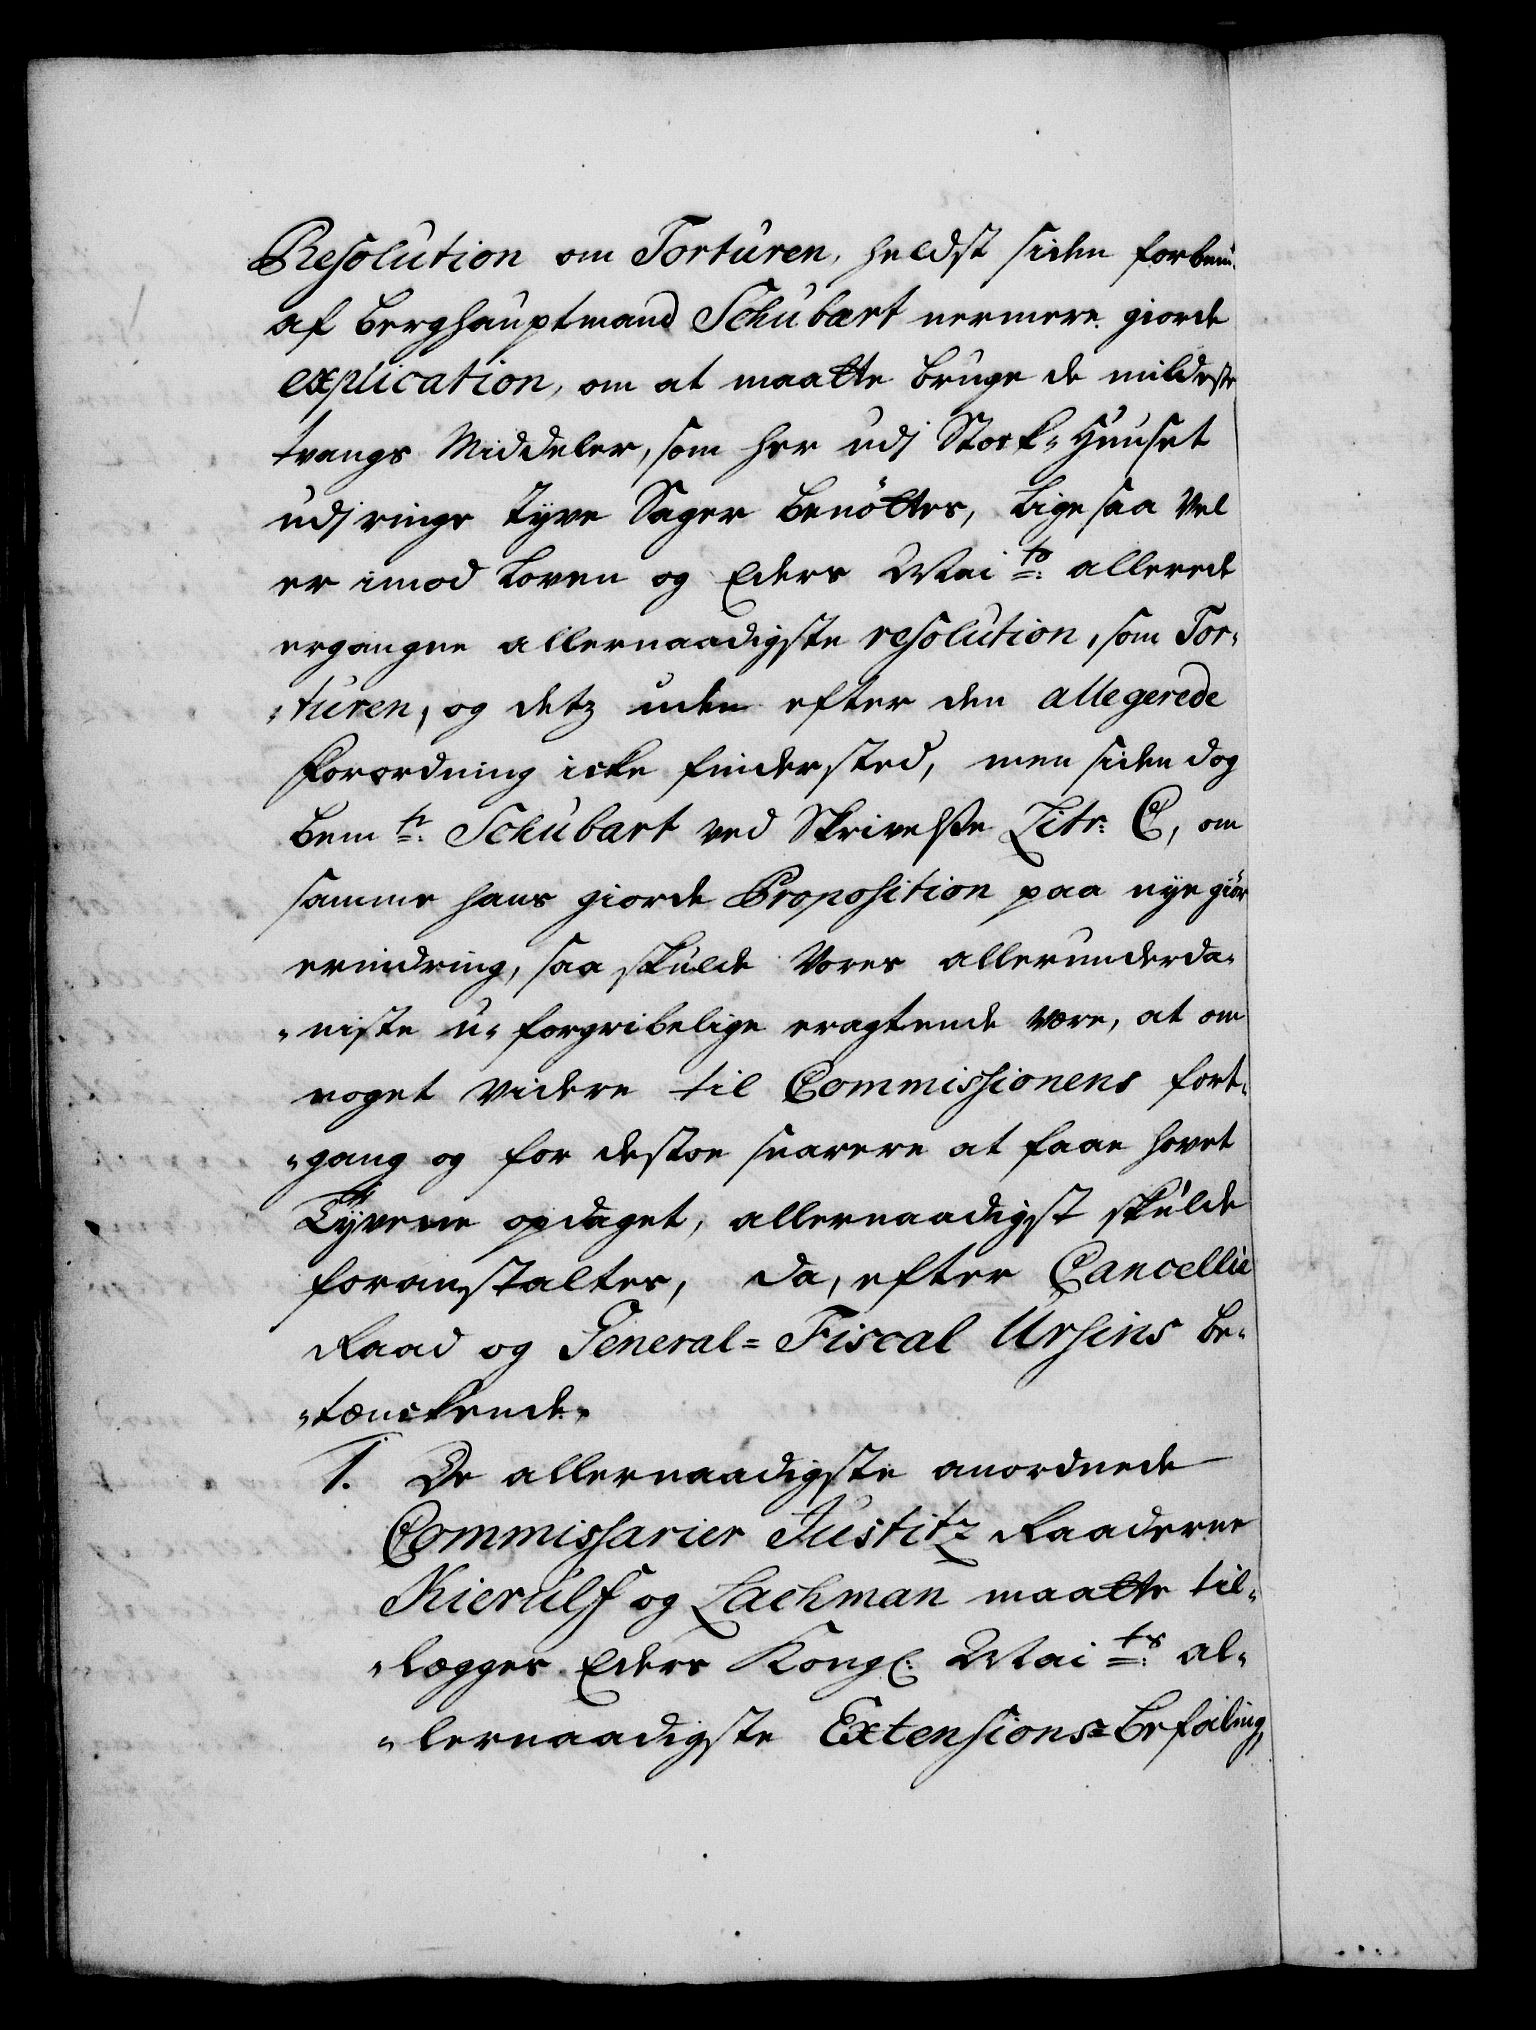 Resolution om Torturen, heldst siden forbem.
af Berghauptmand Schubart nermere giorde
explication, om at maatte bruge de mildeste
tvangs Middeler, som her udi Stock-Huuset
udi ringe Tyve Sager benöttes, lige saa vel
er imod Loven og Eders Mai ts: allerede
ergangne allernaadigste resolution, som Tor-
-turen, og detz uden efter den allegerede
Forordning icke finder sted, men siden dog
bem te: Schubart ved Skrivelse Litr: C, om
samme hans giorde Proposition paa nye giör
erindring, saa skulde vores allerunderda-
-niste u-forgribelige eragtende være, at om
noget videre til Commissionens fort-
-gang og for destoe snarere at faae hovet
Tyvene opdaget, allernaadigst skulde
foranstaltes, da, efter Cancellie
Raad og General-Fiscal Ursins be-
-tænckende.
1. De allernaadigste anordnede
Commissarier Justitz Raaderne
Kierulf og Lachman maatte til-
-lægges Eders Kongl: Mai ts: al-
-lernaadigste Extensions-Befaling,